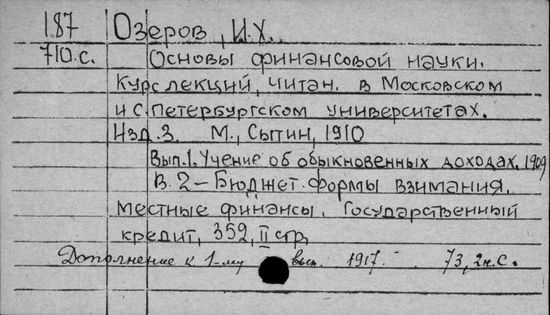 187 Озеров, И.Х.
710.с. Основы финансовой науки.
Курс лекций, читан. в Московском
и С.Петербургском университетах.
Изд. 3. М., Сытин, 1910
Вып.1. Учение об обыкновенных доходах. 1909
В. 2 – Бюджет. формы взимания.
Местные финансы. Государственный
кредит, 352, II стр.
Дополнение к 1-му вып. 1917. 73, 2н.с.